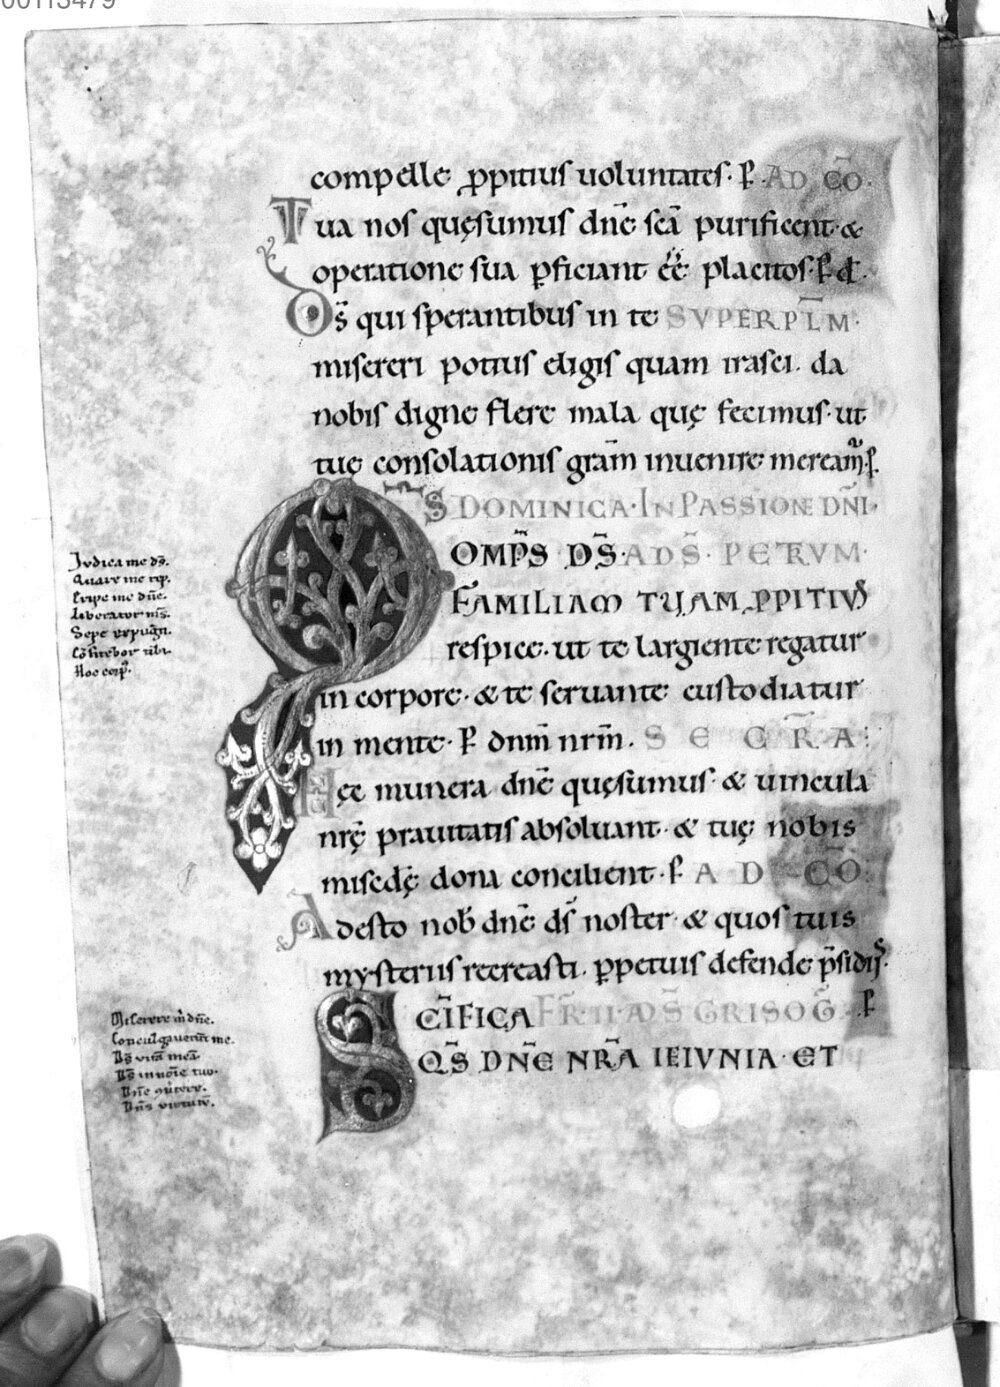 00113479
compelle ꝓpitius uoluntates· P̱ AD CŌ·
Tua nos quęsumus dn̄e sc̄a purificent· &
operatione sua ꝑficiant eē placitos·
Ds̄ qui sperantibus in te SUPER PL̄M·
misereri potius eligis quam irasci· da
nobis digne flere mala quę fecimus· ut
tuę consolationis grām inuenire mereamr̄ P̱.
DOMINICA· IN PASSIONE DN̄I·
QS OMP̄S DS̄· AD S̄· PETRVM·
FAMILIAM TUAM ꝓPITIUS
respice· ut te largiente regatur
in corpore· & te seruante custodiatur
in mente· P̱ dnm̄ nrm̄. SECR̄A:
Hęc munera dn̄e quęsumus & uincula
nrę̄ prauitatis absoluant· & tuę nobis
misc̄dę dona concilient· P̱ AD CŌ:
Adesto nob̄ dn̄e ds̄ noster· & quos tuis
mysteriis recreasti· ꝑpetuis defende p̄sidijs·
SC̄IFICA FR̄· II· AD S̄ GRISOḠ· P̱
QS̄ DN̄E NR̄A IEIVNIA· ET
Judica me ds̄.
Quare me rep̄.
Eripe me dn̄e.
Liberator ms̄.
Sepe expugn̄.
Cōfitebor tibi.
Hoc corp̄.
Miserere m̄ dn̄e.
Conculcauerūt me.
Ds̄ vitā meā
Ds̄ in noīe tuo.
Dn̄e ꝯuertere.
Dn̄s virtutū.